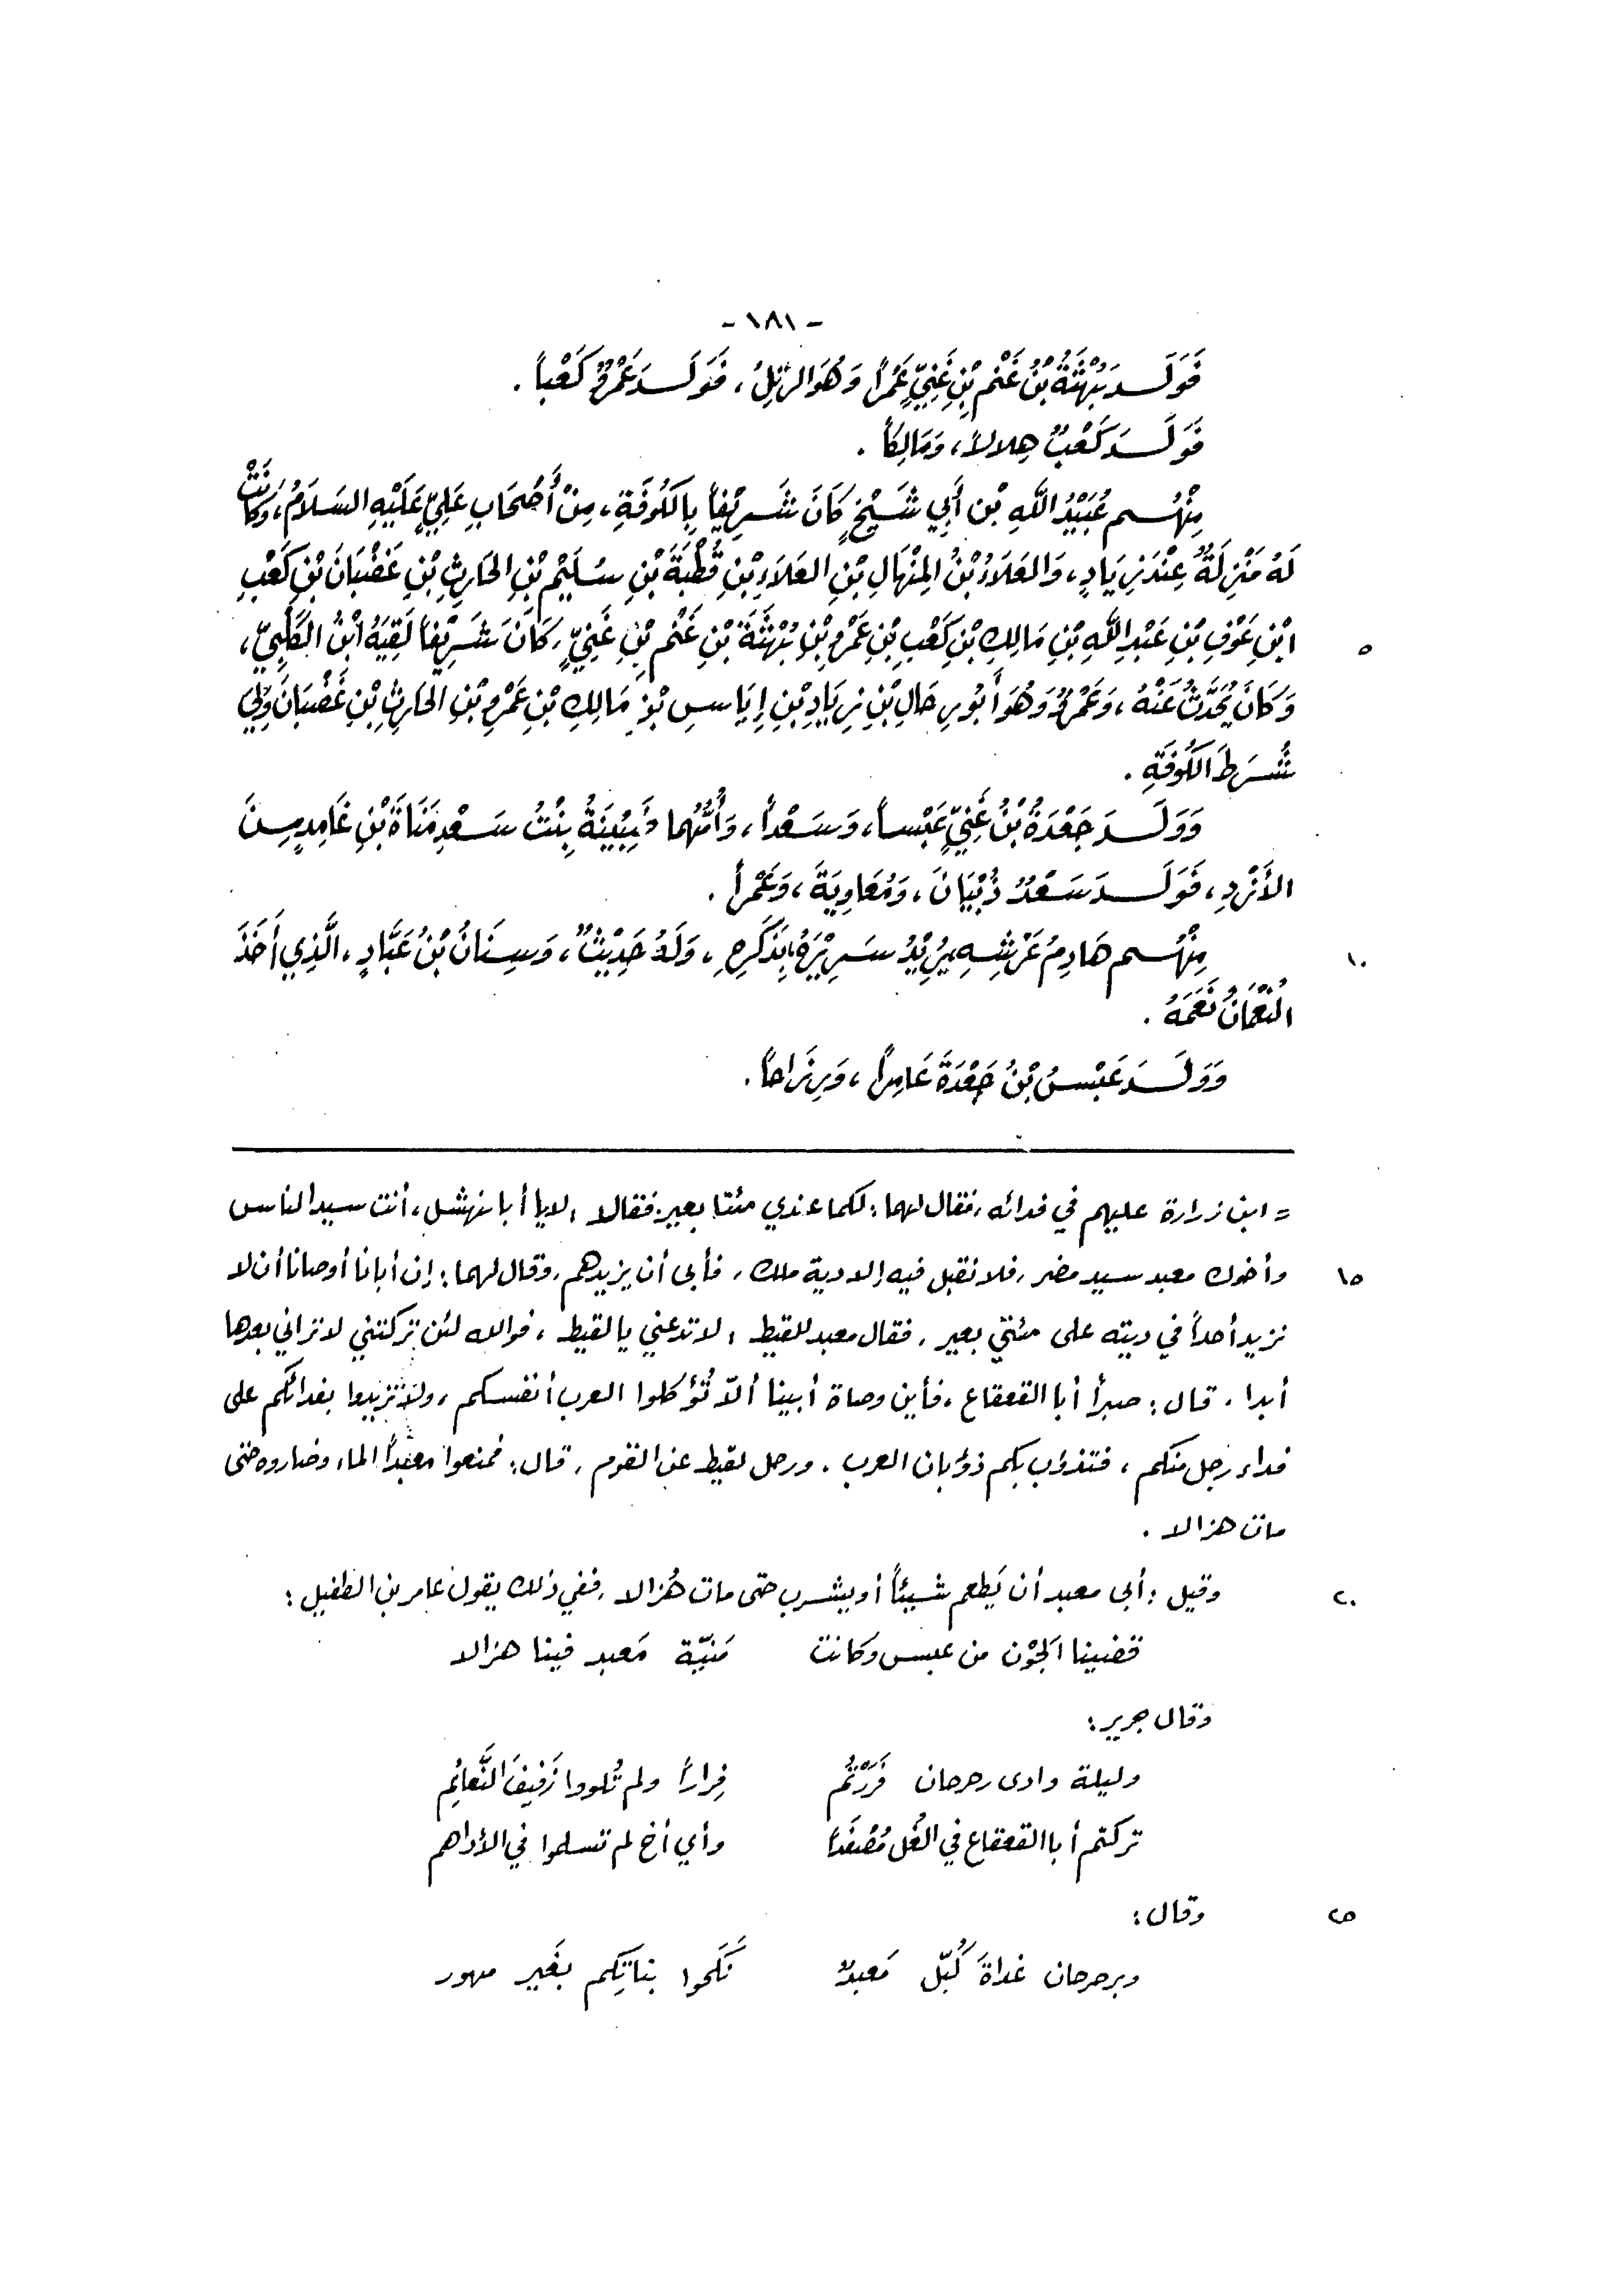 - ١٨١ -
فَوَلَدَ بُهْثَةُ بْنُ غَنْمِ بْنِ غَنِيٍّ عَمْراً وَهُوَ الرَّتِلُ، فَوَلَدَ عَمْرٌو كَعْباً.
فَوَلَدَ كَعْبٌ هِلالاً، وَمَالِكاً.
مِنْهُم عُبَيْدُ اللَّهِ بْن أَبِي شَيْخٍ كَانَ شَرِيْفاً بِالكُوفَةِ، مِنْ أَصْحَابِ عَلِيٍّ عَلَيْهِ السَلاَمُ، وَكَانَتْ
لَهُ مَنْزِلَةٌ عِنْدَ زِيَادٍ، وَالعَلاَءُ بْنُ المِنْهَالِ بْنِ العَلاَءِ بْنِ قُطْبَةَ بْنِ سُلَيْمِ بْنِ الحَارِثِ بْنِ غَضْبَانَ بْنِ كَعْبِ
٥ ابْنِ عَوْفِ بْنِ عَبْدِ اللَّهِ بْنِ مَالِكِ بْنِ كَعْبِ بْنِ عَمْرِو بْنِ بُهْثَةَ بْنِ غَنْمِ بْنِ غَنِيٍّ، كَانَ شَرِيْفاً لَقِيَهُ ابْنُ الكَلْبِيِّ،
وَكَانَ يُحَدِّثُ عَنْهُ، وَعَمْرٌو وَهُوَ أَبُو رِحَالِ بْنِ زِيَادِ بْنِ إِيَاسِ بْنِ مَالِكِ بْنِ عَمْرِو بْنِ الحَارِثِ بْنِ غَضْبَانَ وَلِيَ
شُرَطَ الكُوفَةِ.
وَوَلَدَ جَعْدَةُ بْنُ غَنِيٍّ عَبْساً، وَسَعْداً، وَأُمُّهُما بِنْتُ سَعْدِ مَنَاةَ بْنِ غَامِدٍ مِنَ
الأَزْدِ، فَوَلَدَ سَعْدٌ ذُبْيَانَ، وَمُعَاوِيَةَ، وَعَمْراً.
١٠ مِنْهُم هَادِمُ عَرْشِهِ يُرِيْدُ سَرِيْرَهُ بِذَكَرِهِ، وَلَهُ حَدِيْثٌ، وَسِنَانُ بْنُ عَبَّادٍ، الَّذِي أَخَذَ
النُعْمَانُ نَعَمَهُ.
وَوَلَدَ عَبْسُ بْنُ جَعْدَةَ عَامِراً، وَرِزَاحاً.
= ابن زرارة عليهم في فدائه، فقال لهما: لكما عندي مئتا بعير. فقالا: لا يا أبا نهشل، أنت سيد الناس
١٥ وأخوك معبد سيد مضر، فلا نقبل فيه إلا دية ملك، فأبى أن يزيدهم، وقال لهما: إن أبانا أوصانا أن لا
نزيد أحداً في ديته على مئتي بعير، فقال معبد للقيط: لا تدعني يا لقيط، فوالله لئن تركتني لا تراني بعدها
أبدا، قال: صبراً أبا القعقاع، فأين وصاة أبينا ألاّ تُؤكلوا العرب أنفسكم، ولا تزيدوا بفدائكم على
فداء رجل منكم، فتذؤب بكم ذؤبان العرب. ورحل لقيط عن القوم، قال: فمنعوا معبداً الماء وضاروه حتى
مات هزالا.
٢٠ وقيل: أبى معبد أن يَطعم شيئاً أو يشرب حتى مات هُزالا، ففي ذلك يقول عامر بن الطفيل:
قضينا الجَوْن من عبس وكانت مَنيّة مَعبد فينا هزالا
وقال جرير:
وليلة وادى رحرحان فَرَرْتُم فِراراً ولم تُلووا زَفيفَ النَّعائِم
تركتم أبا القعقاع في الغُل مُصْفَداً وأي أخ لم تسلموا في الأداهم
٢٥ وقال:
وبرحرحان غداةَ كُبّل مَعبدٌ نَكَحوا بناتِكم بغَير مهور